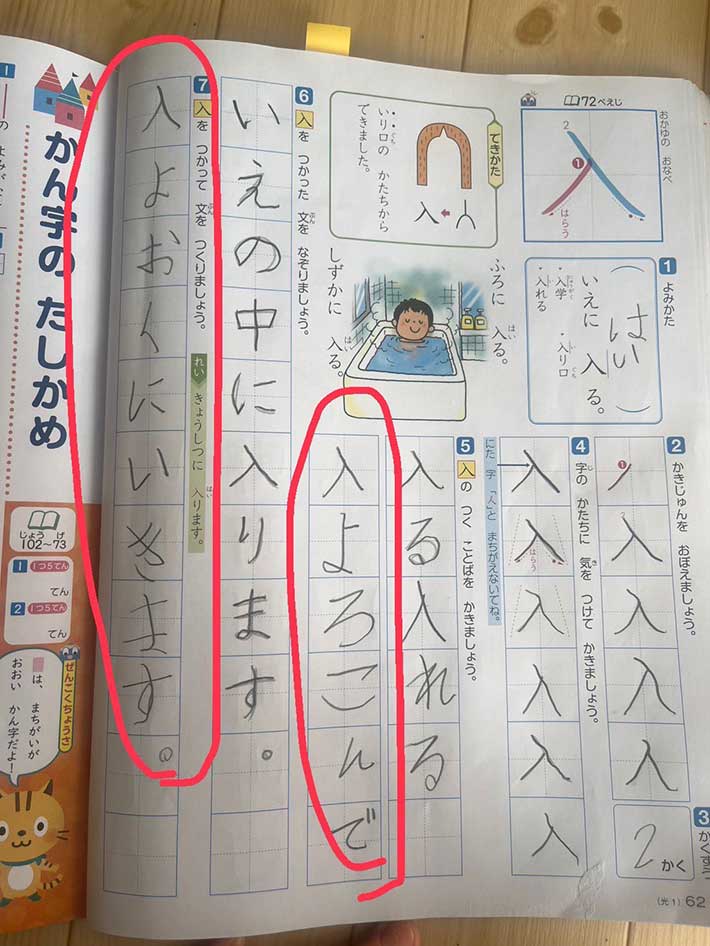 おかゆの おなべ
72ぺえじ
2
1
入
はらう
てきかた
いり口の かたちから
できました。
1 よみかた
(はい)
いえに 入る。
・入学 ・入り口
・入れる
ふろに 入る。
しずかに 入る。
2 かきじゅんを おぼえましょう。
入 入 入 入
3 かくすう
2かく
4 字の かたちに 気を つけて かきましょう。
入 入 入 入 入 入
はらう
にた 字「人」と まちがえないでね。
5 入の つく ことばを かきましょう。
入る入れる
入よろこんで
6 入を つかった 文を なぞりましょう。
いえの中に入ります。
7 入を つかって 文を つくりましょう。
れい きょうしつに 入ります。
入よおくにいきます。
(光1) 62
かん字の たしかめ
じょう げ
102〜73
1 1つ5てん
てん
2 1つ5てん
てん
ぜんこくちょうさ
は、まちがいが
おおい かん字だよ!